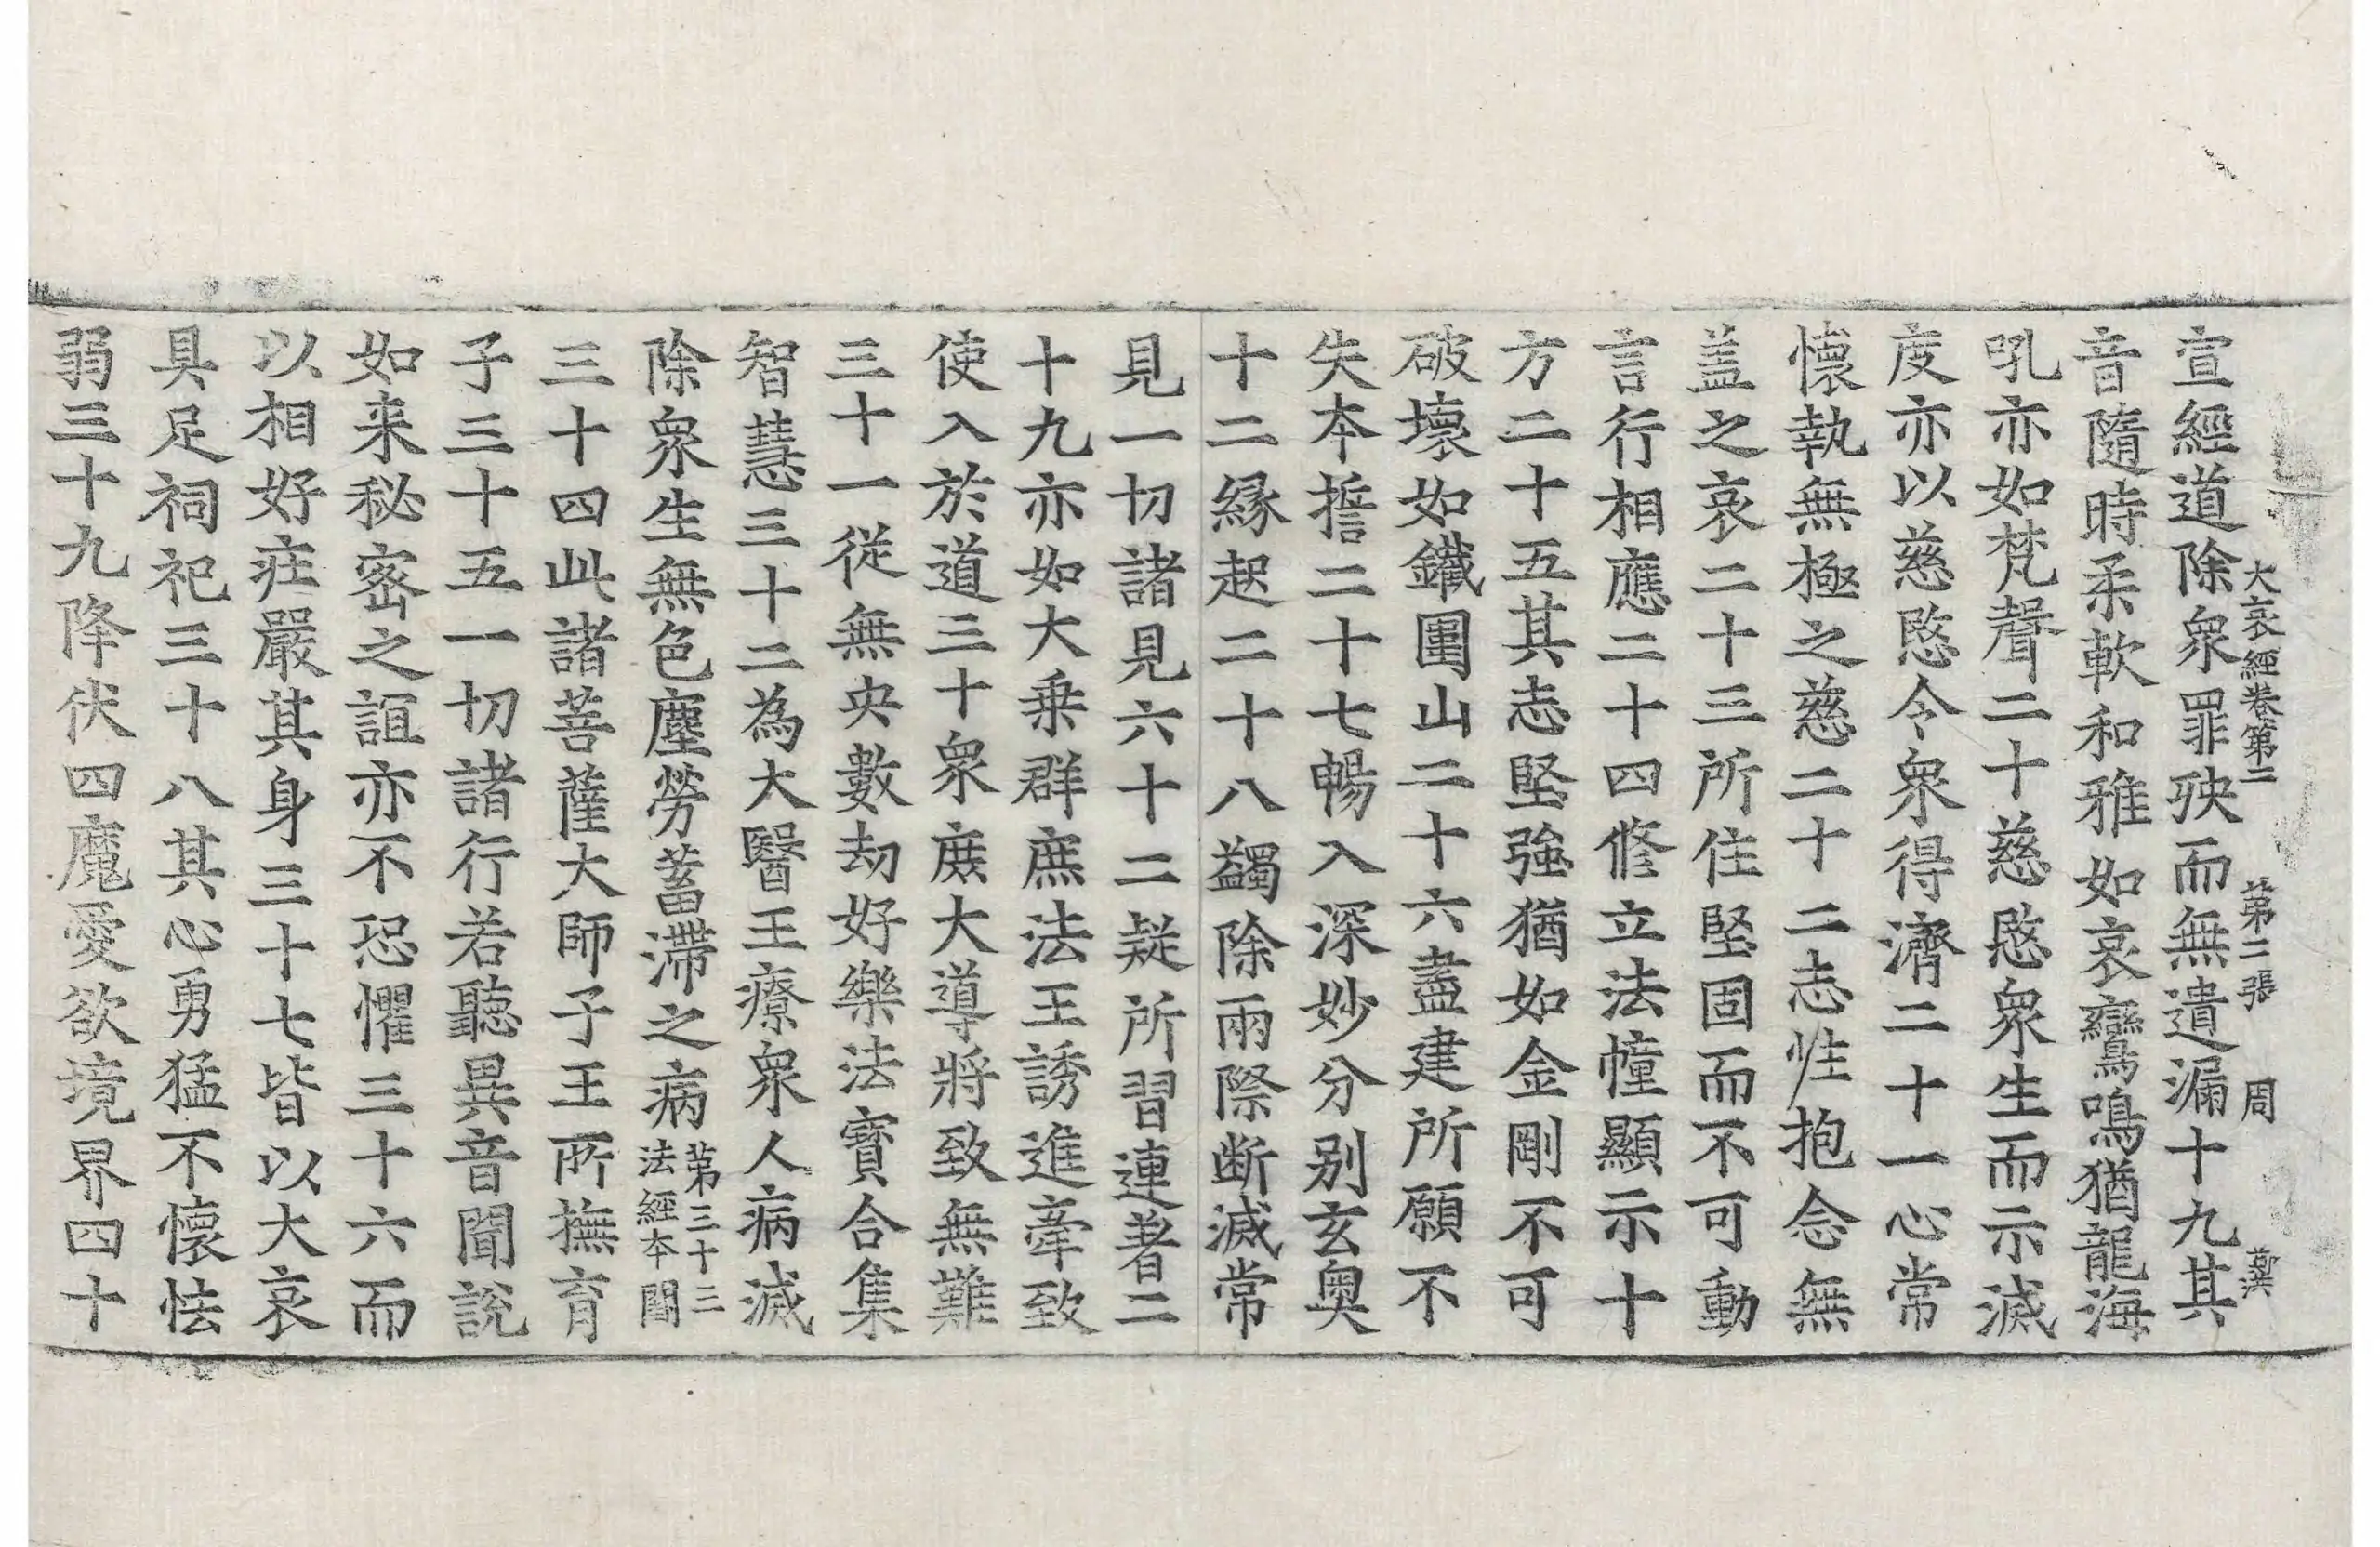 大哀經卷第二　第二張　周　󠄀
宣經道除衆罪殃而無遺漏十九其
音隨時柔軟和雅如哀鸞鳴猶龍海
吼亦如梵聲二十慈愍衆生而示滅
度亦以慈愍令衆得濟二十一心常
懷執無極之慈二十二志性抱念無
盖之哀二十三所住堅固而不可動
言行相應二十四修立法幢顯示十
方二十五其志堅強猶如金剛不可
破壞如鐵圍山二十六盡建所願不
失本誓二十七暢入深妙分别玄奥
十二縁起二十八蠲除兩際断滅常
見一切諸見六十二疑所習連著二
十九亦如大乗群庶法王誘進牽致
使入於道三十衆庶大導將致無難
三十一從無央數劫好樂法寶合集
智慧三十二為大醫王療衆人病滅
除衆生無色塵勞蓄滯之病第三十三法經本闕
三十四此諸菩薩大師子王所撫育
子三十五一切諸行若聽異音聞說
如来秘密之誼亦不恐懼三十六而
以相好莊嚴其身三十七皆以大哀
具足祠祀三十八其心勇猛不懷怯
弱三十九降伏四魔愛欲境界四十